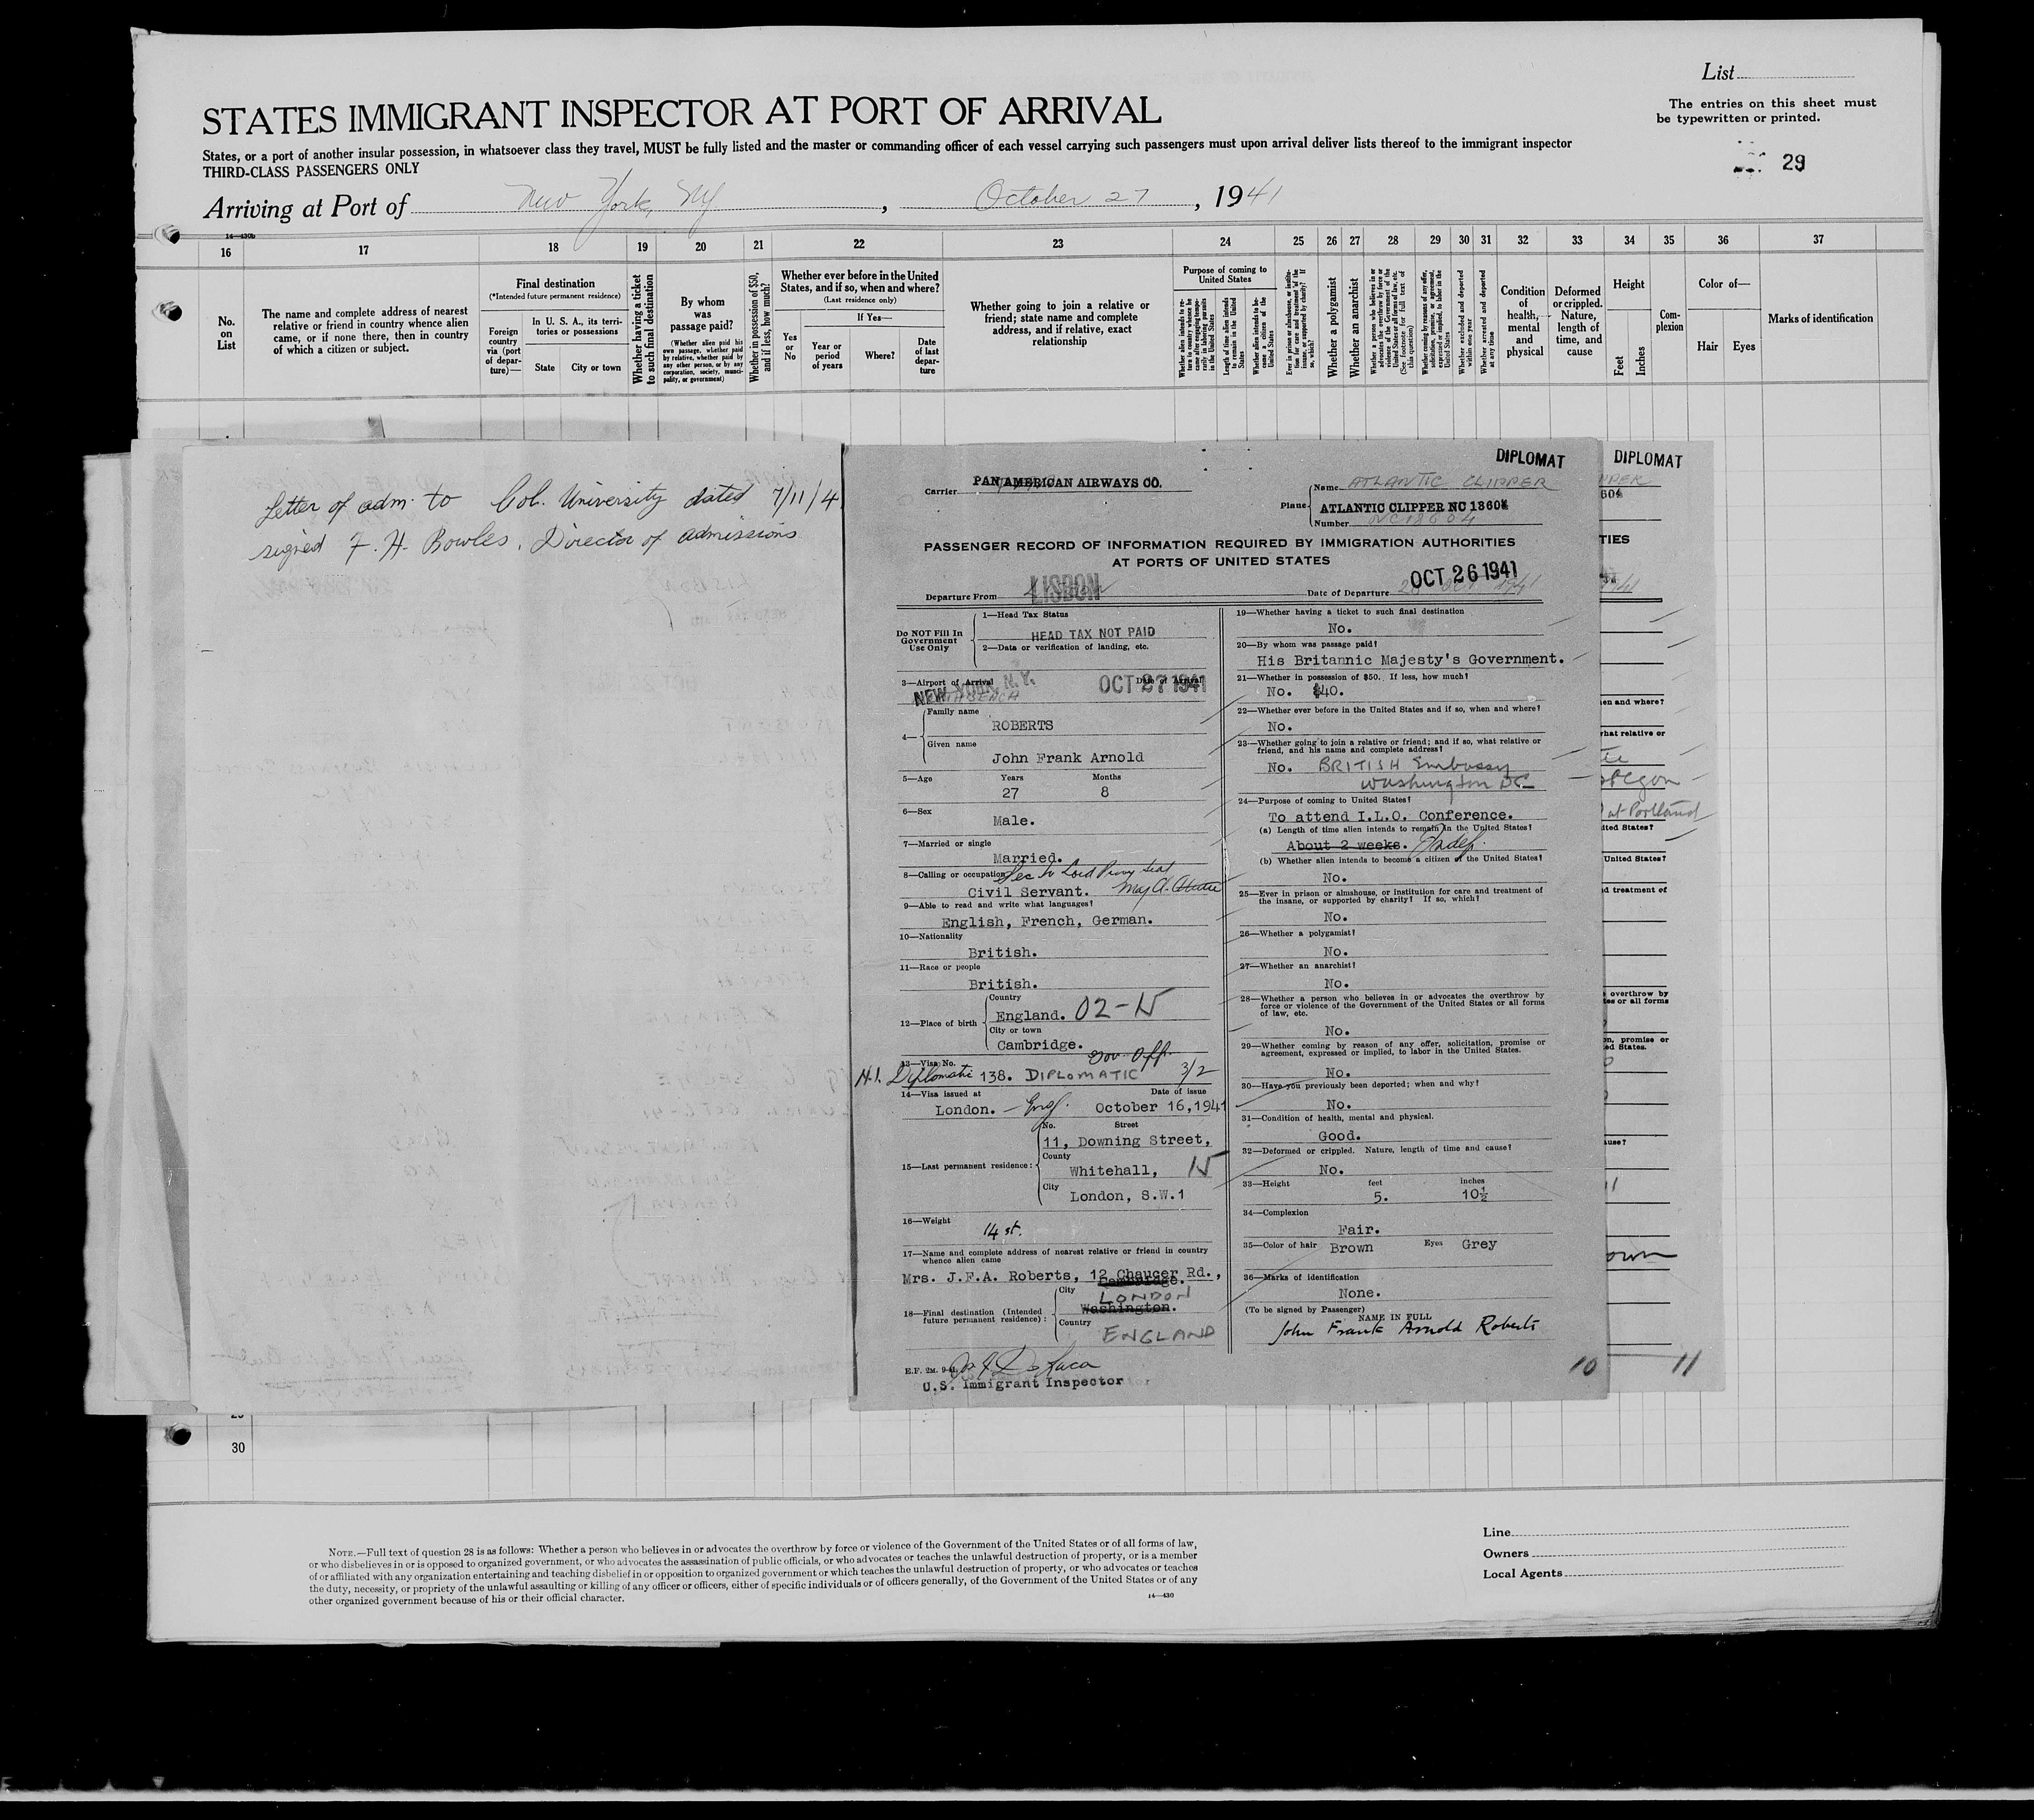 List
The entries on this sheet must
be typewritten or printed.
29
STATES IMMIGRANT INSPECTOR AT PORT OF ARRIVAL
States, or a port of another insular possession, in whatsoever class they travel, MUST be fully listed and the master or commanding officer of each vessel carrying such passengers must upon arrival deliver lists thereof to the immigrant inspector
THIRD-CLASS PASSENGERS ONLY
Arriving at Port of New York, NY, October 27, 1941
14-430b
16 17 18 19 20 21 22 23 24 25 26 27 28 29 30 31 32 33 34 35 36 37
No.
on
List
The name and complete address of nearest
relative or friend in country whence alien
came, or if none there, then in country
of which a citizen or subject.
Final destination
(*Intended future permanent residence)
Foreign
country
via (port
of depar-
ture)—
In U. S. A., its terri-
tories or possessions
State
City or town
Whether having a ticket
to such final destination
By whom
was
passage paid?
(Whether alien paid his
own passage, whether paid
by relative, whether paid by
any other person, or by any
corporation, society, munici-
pality, or government)
Whether in possession of $50,
and if less, how much?
Whether ever before in the United
States, and if so, when and where?
(Last residence only)
Yes
or
No
If Yes—
Year or
period
of years
Where?
Date
of last
depar-
ture
Whether going to join a relative or
friend; state name and complete
address, and if relative, exact
relationship
Purpose of coming to
United States
Whether alien intends to re-
turn to country whence he
came after engaging tempo-
rarily in laboring pursuits
in the United States
Length of time alien intends
to remain in the United
States
Whether alien intends to be-
come a citizen of the
United States
Ever in prison or almshouse, or institu-
tion for care and treatment of the
insane, or supported by charity? If
so, which?
Whether a polygamist
Whether an anarchist
Whether a person who believes in or
advocates the overthrow by force or
violence of the Government of the
United States or all forms of law, etc.
(See footnote for full text of
this question)
Whether coming by reason of any offer,
solicitation, promise, or agreement,
expressed or implied, to labor in the
United States
Whether excluded and deported
within one year
Whether arrested and deported
at any time
Condition
of
health,
mental
and
physical
Deformed
or crippled.
Nature,
length of
time, and
cause
Height
Feet
Inches
Com-
plexion
Color of—
Hair
Eyes
Marks of identification
Letter of adm. to Col. University dated 7/11/4
signed F. H. Bowles, Director of admissions
DIPLOMAT
Carrier PAN AMERICAN AIRWAYS CO.
Plane
Name ATLANTIC CLIPPER
ATLANTIC CLIPPER NC 18604
Number NC18604
PASSENGER RECORD OF INFORMATION REQUIRED BY IMMIGRATION AUTHORITIES
AT PORTS OF UNITED STATES
Departure From LISBON
Date of Departure OCT 26 1941
Do NOT Fill In
Government
Use Only
1—Head Tax Status
HEAD TAX NOT PAID
2—Data or verification of landing, etc.
3—Airport of Arrival
Date of Arrival
NEW YORK, N.Y. OCT 27 1941
4—
Family name
ROBERTS
Given name
John Frank Arnold
5—Age
Years Months
27 8
6—Sex
Male.
7—Married or single
Married.
8—Calling or occupation Sec to Lord Privy Seal
Civil Servant. Maj. A. Attlee
9—Able to read and write what languages?
English, French, German.
10—Nationality
British.
11—Race or people
British.
12—Place of birth
Country
England. 02-15
City or town
Cambridge.
13—Visa No. Gov. Off.
N.I. Diplomatic 138. DIPLOMATIC 3/2
14—Visa issued at Date of issue
London. - Eng. October 16,1941
15—Last permanent residence:
No. Street
11, Downing Street,
County
Whitehall, 15
City
London, S.W.1
16—Weight
14 st.
17—Name and complete address of nearest relative or friend in country
whence alien came
Mrs. J.F.A. Roberts, 12 Chaucer Rd.,
Cambridge.
18—Final destination (Intended
future permanent residence):
City
LONDON
Washington.
Country
ENGLAND
E.F. 2M. 9-41
U.S. Immigrant Inspector
19—Whether having a ticket to such final destination
No.
20—By whom was passage paid?
His Britannic Majesty's Government.
21—Whether in possession of $50. If less, how much?
No. $40.
22—Whether ever before in the United States and if so, when and where?
No.
23—Whether going to join a relative or friend; and if so, what relative or
friend, and his name and complete address?
No. BRITISH Embassy
Washington DC
24—Purpose of coming to United States?
To attend I.L.O. Conference.
(a) Length of time alien intends to remain in the United States?
About 2 weeks. Indef.
(b) Whether alien intends to become a citizen of the United States?
No.
25—Ever in prison or almshouse, or institution for care and treatment of
the insane, or supported by charity? If so, which?
No.
26—Whether a polygamist?
No.
27—Whether an anarchist?
No.
28—Whether a person who believes in or advocates the overthrow by
force or violence of the Government of the United States or all forms
of law, etc.
No.
29—Whether coming by reason of any offer, solicitation, promise or
agreement, expressed or implied, to labor in the United States.
No.
30—Have you previously been deported; when and why?
No.
31—Condition of health, mental and physical.
Good.
32—Deformed or crippled. Nature, length of time and cause?
No.
33—Height feet inches
5. 10½
34—Complexion
Fair.
35—Color of hair Brown Eyes Grey
36—Marks of identification
None.
(To be signed by Passenger)
NAME IN FULL
John Frank Arnold Roberts
10
DIPLOMAT
PPER
604
TIES
en and where?
hat relative or
regon
at Portland
ited States?
United States?
d treatment of
overthrow by
tes or all forms
on, promise or
ed States.
ause?
own
11
30
NOTE.—Full text of question 28 is as follows: Whether a person who believes in or advocates the overthrow by force or violence of the Government of the United States or of all forms of law,
or who disbelieves in or is opposed to organized government, or who advocates the assassination of public officials, or who advocates or teaches the unlawful destruction of property, or is a member
of or affiliated with any organization entertaining and teaching disbelief in or opposition to organized government or which teaches the unlawful destruction of property, or who advocates or teaches
the duty, necessity, or propriety of the unlawful assaulting or killing of any officer or officers, either of specific individuals or of officers generally, of the Government of the United States or of any
other organized government because of his or their official character.
14—430
Line
Owners
Local Agents